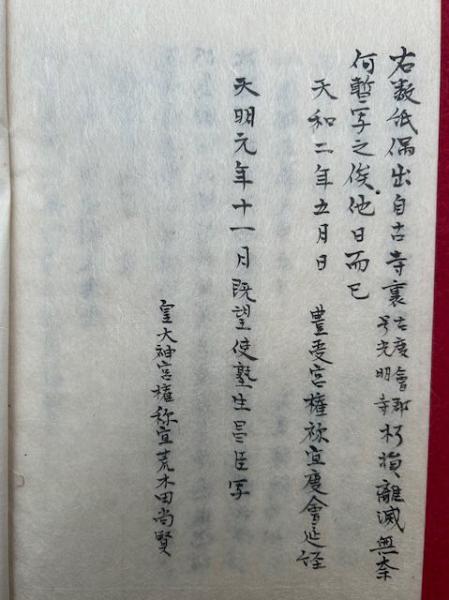 右数紙偶出自古寺裏在度會郡号光明寺朽損離滅無奈
何暫写之俟他日而已
天和二年五月日
豊受宮権祢宜度會延経
天明元年十一月既望使塾生臣写
皇大神宮権祢宜荒木田尚賢